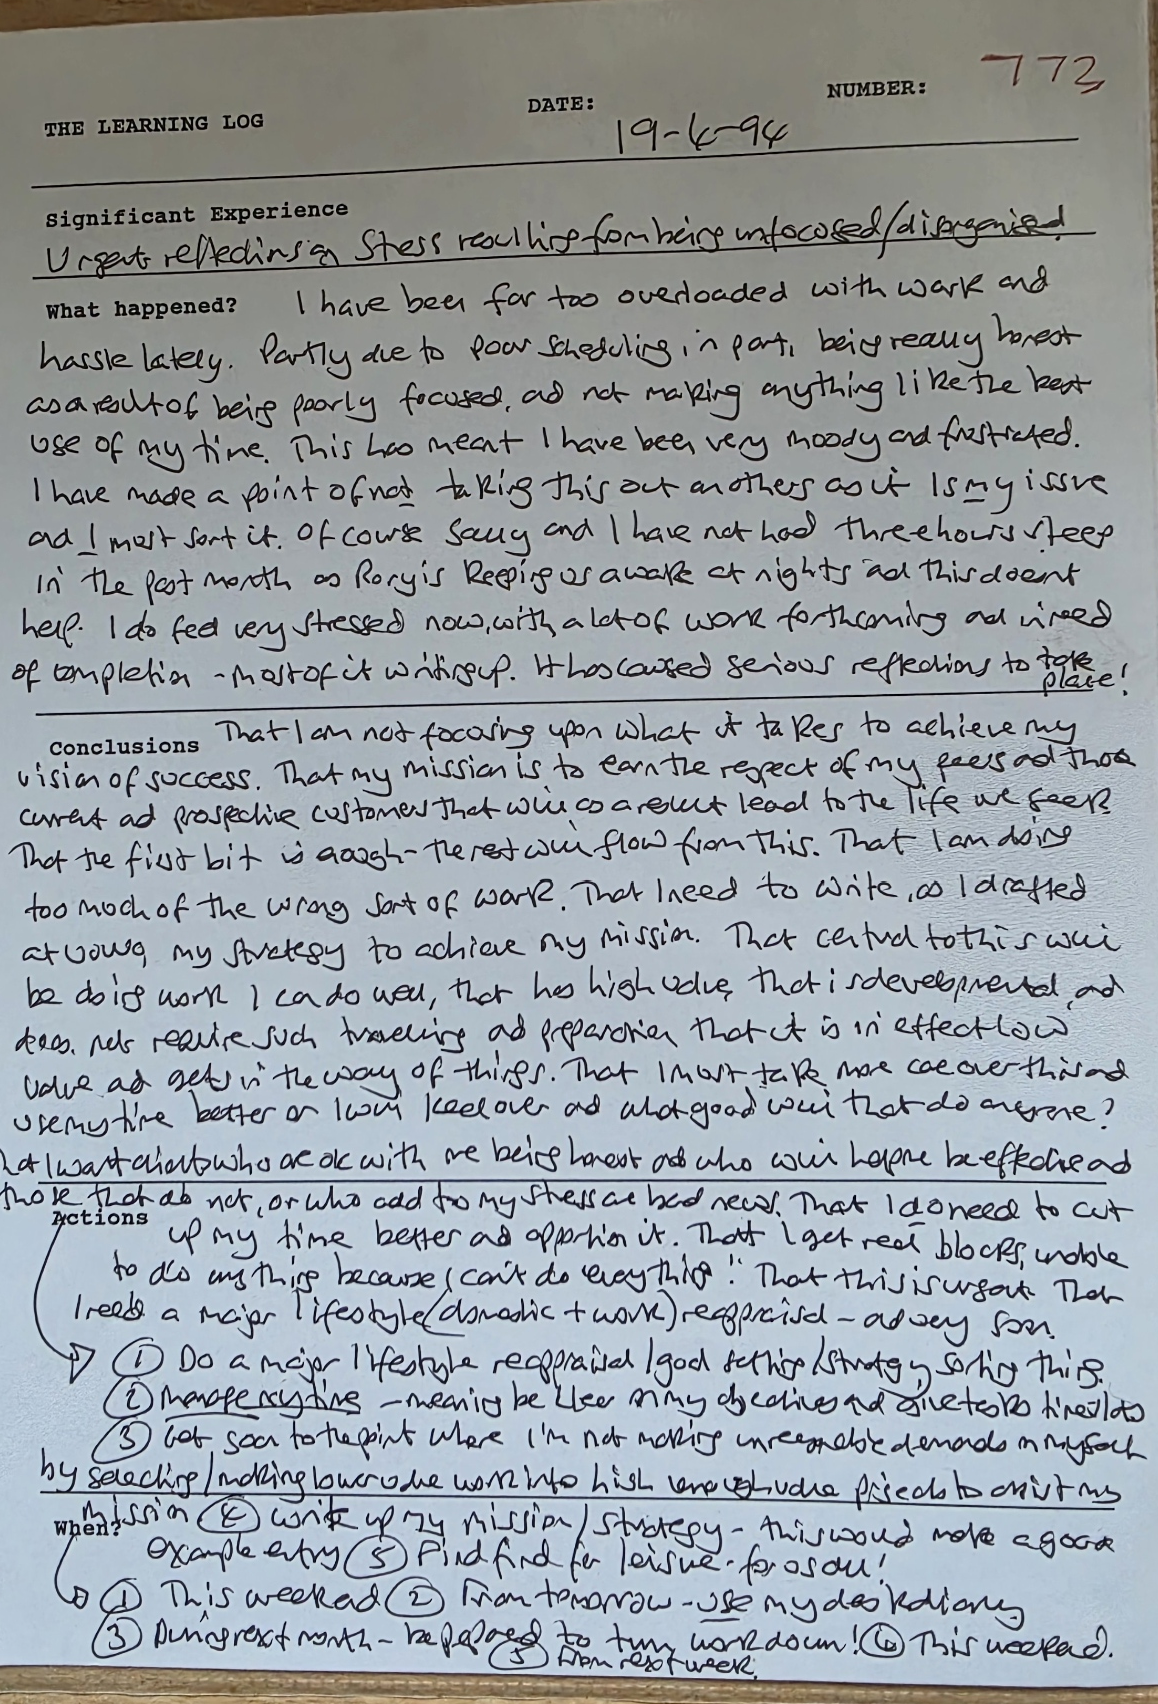 THE LEARNING LOG DATE: 19-4-94 NUMBER: 773
Significant Experience
Urgent reflections on Stress resulting from being unfocused/disorganised
What happened? I have been far too overloaded with work and
hassle lately. Partly due to poor scheduling, in part, being really honest
as a result of being poorly focused, and not making anything like the best
use of my time. This has meant I have been very moody and frustrated.
I have made a point of not taking this out on others as it is my issue
and I must sort it. Of course Sally and I have not had three hours sleep
in the past month as Rory is keeping us awake at nights and this doesnt
help. I do feel very stressed now, with a lot of work forthcoming and in need
of completion - most of it writing up. It has caused serious reflections to take
place!
Conclusions That I am not focusing upon what it takes to achieve my
vision of success. That my mission is to earn the respect of my peers and those
current and prospective customers that will as a result lead to the life we seek
That the first bit is enough - the rest will flow from this. That I am doing
too much of the wrong sort of work. That I need to write, as I drafted
at my strategy to achieve my mission. That central to this will
be doing work I can do well, that has high value, that is developmental, and
does not require such travelling and preparation that it is in effect low
value and gets in the way of things. That I must take more care over this and
use my time better or I will keel over and what good will that do anyone?
That I want clients who are ok with me being honest and who will help me be effective and
those that do not, or who add to my stress are bad news. That I do need to cut
Actions up my time better and apportion it. That I get real blocks, unable
to do anything because I can't do 'everything'! That this is urgent. That
I need a major lifestyle (domestic + work) reappraisal - and very soon.
① Do a major lifestyle reappraisal/goal setting/strategy sorting thing.
② Manage my time - meaning be clear on my objectives and give tasks time slots
③ Get soon to the point where I'm not making unreasonable demands on myself
by selecting/making lower value work into high enough value projects to assist my
mission ④ Write up my mission/strategy - this would make a good
When? example entry ⑤ Find find for leisure - for us all!
① This weekend ② From tomorrow - use my desk diary
③ During next month - be prepared to turn work down! ④ This weekend.
⑤ From next week.